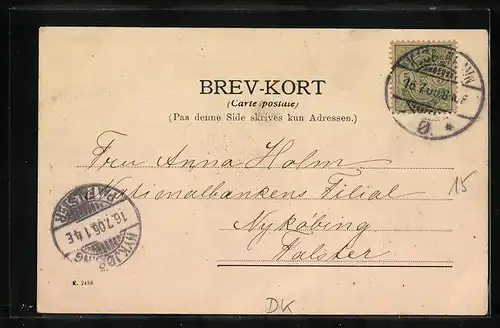 BREV-KORT
(Carte postale)
(Paa denne Side skrives kun Adressen.)
Fru Anna Holm
Nationalbankens Filial
Nykøbing
Falster
15
16.7.06.1 4 E
K. 2484
DK
Ø. *